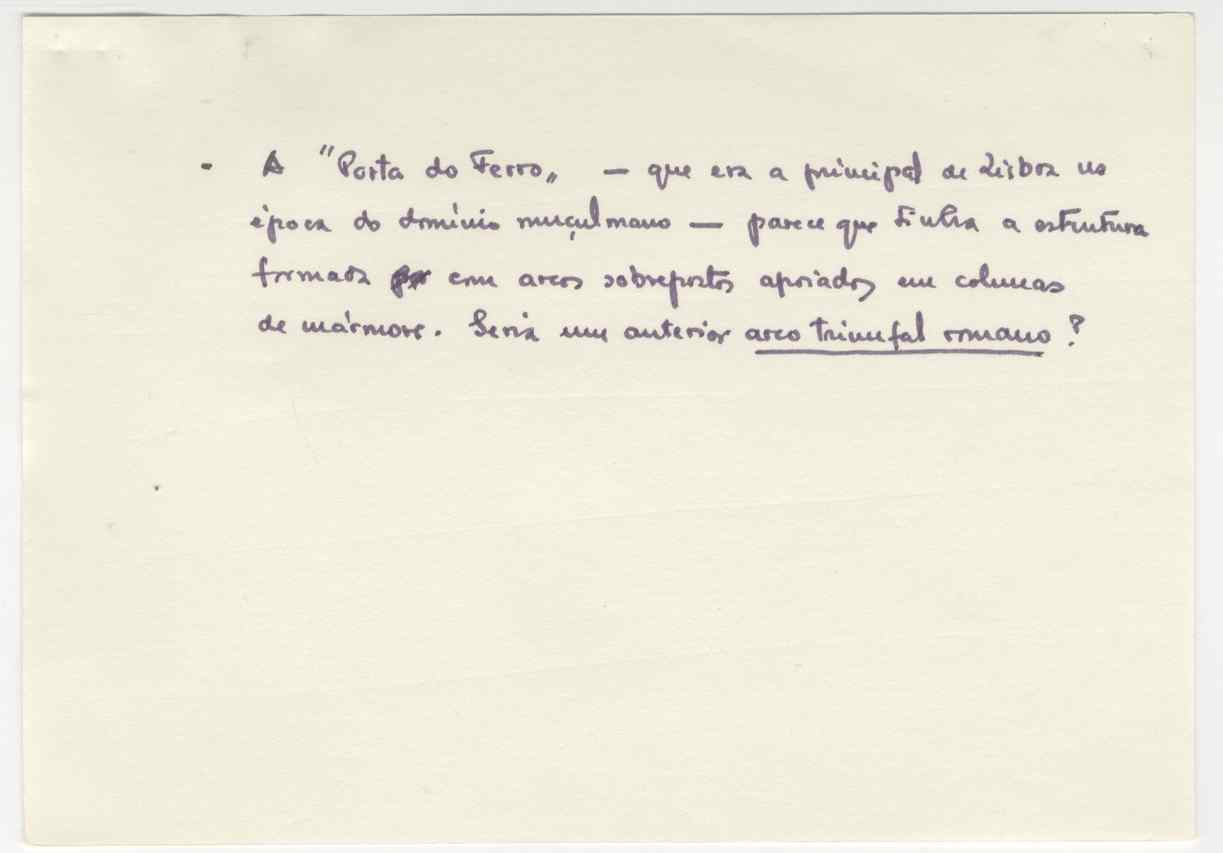 - A "Porta do Ferro" — que era a principal de Lisboa na
época do domínio muçulmano — parece que tinha a estrutura
formada com arcos sobrepostos apoiados em colunas
de mármore. Seria um anterior arco triunfal romano?